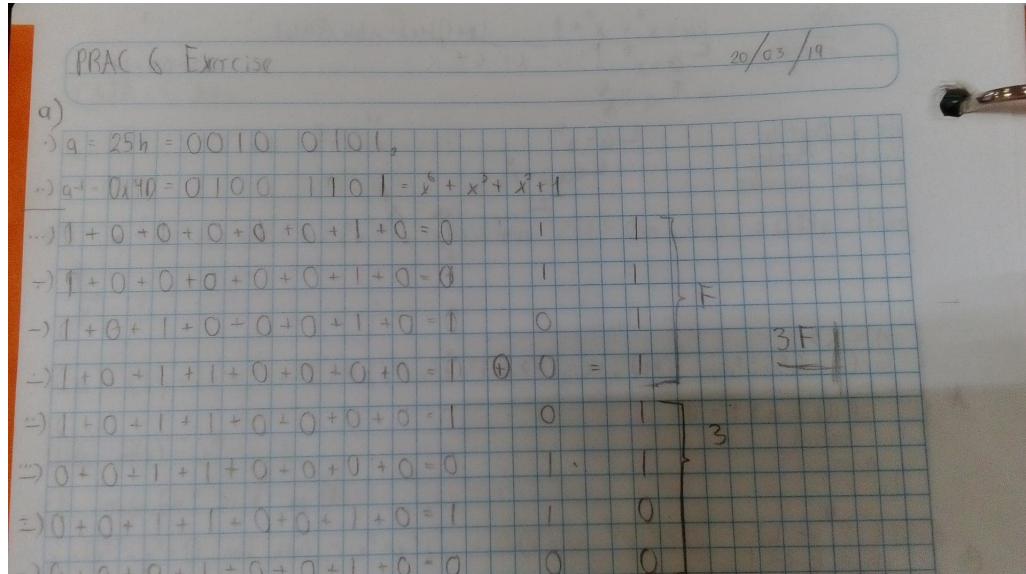 PRAC 6 Exercise 20/03/19
a)
a = 25h = 0010 0101₂
a⁻¹ = 0x4D = 0100 1101 = x⁶ + x³ + x² + 1
1 + 0 + 0 + 0 + 0 + 0 + 1 + 0 = 0 1 1
1 + 0 + 0 + 0 + 0 + 0 + 1 + 0 = 0 1 1
1 + 0 + 1 + 0 + 0 + 0 + 1 + 0 = 1 0 1
F
3F
1 + 0 + 1 + 1 + 0 + 0 + 0 + 0 = 1 ⊕ 0 = 1
1 + 0 + 1 + 1 + 0 + 0 + 0 + 0 = 1 0 1
3
0 + 0 + 1 + 1 + 0 + 0 + 0 + 0 = 0 1 1
0 + 0 + 1 + 1 + 0 + 0 + 1 + 0 = 1 1 0
0 + 0 + 0 + 1 + 0 + 0 + 1 + 0 = 0 0 0